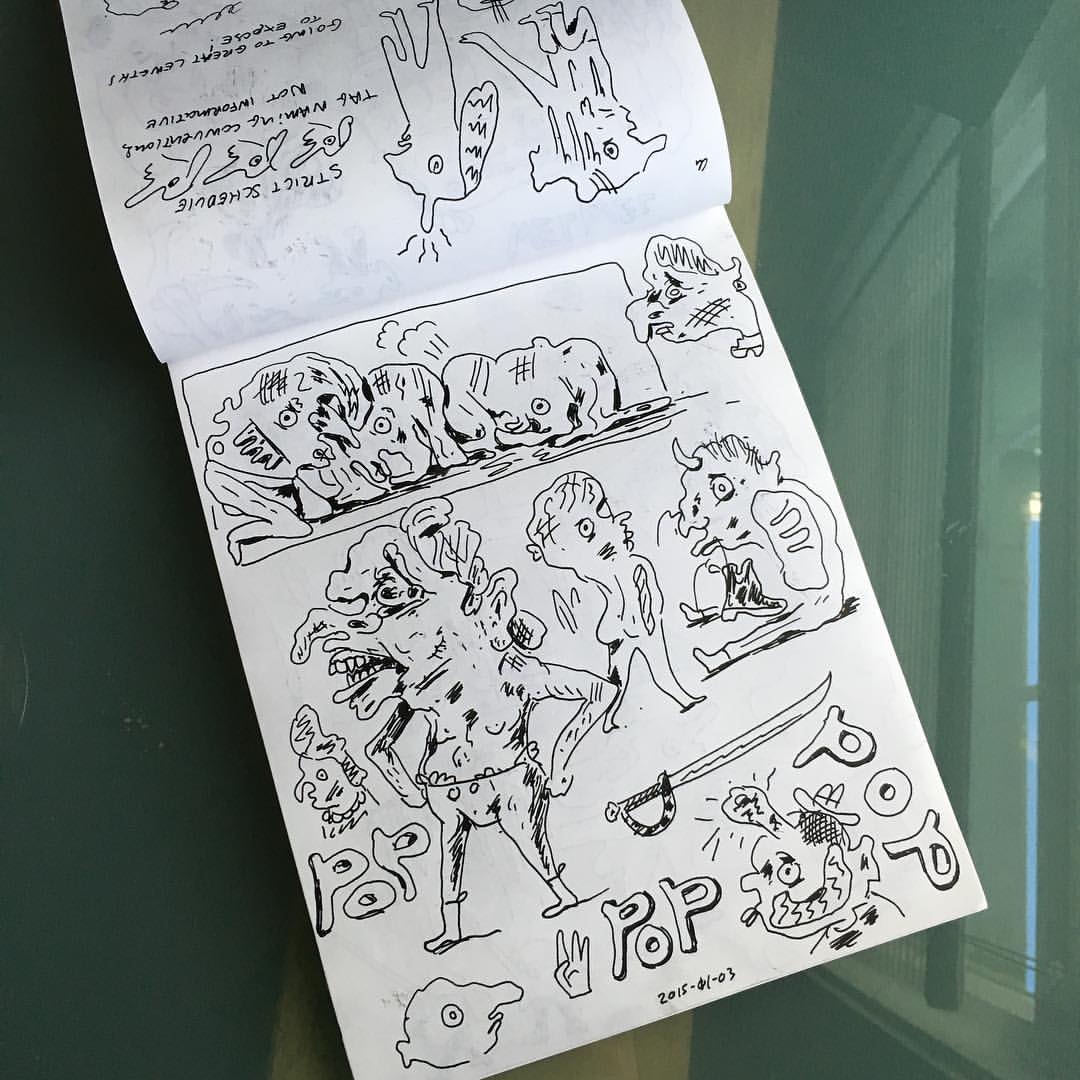 STRICT SCHEDULE
TAG NAMING CONVENTIONS
NOT INFORMATIVE
GOING TO GREAT LENGTHS
TO EXPOSE!
POP
POP
POP
2015-01-03